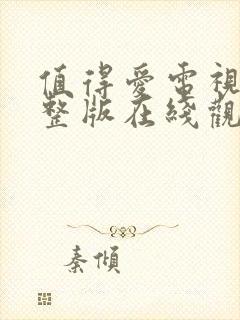 值得愛電視
整版在綫觀
秦傾